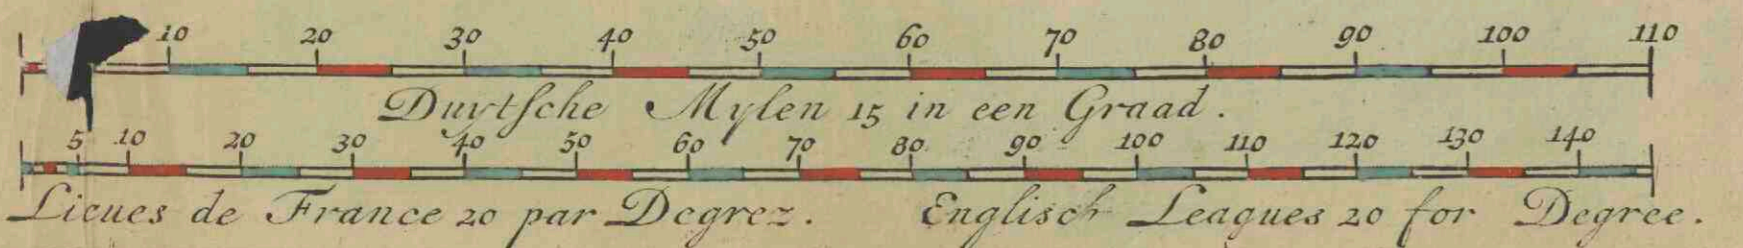 10 20 30 40 50 60 70 80 90 100 110
Duytsche Mylen 15 in een Graad.
5 10 20 30 40 50 60 70 80 90 100 110 120 130 140
Lieues de France 20 par Degrez. Englisch Leagues 20 for Degree.